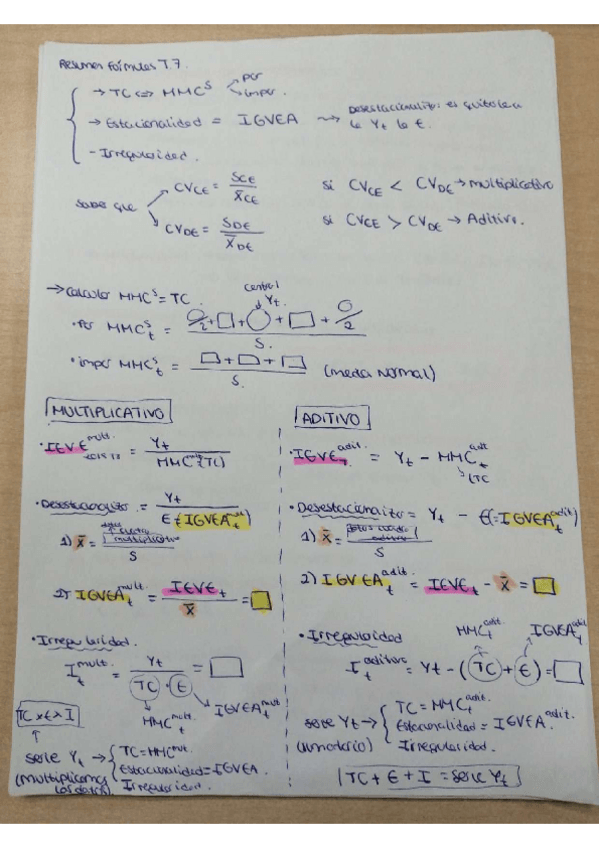 Resumen fórmulas T.7.
→ TC ⇔ MMC^S → par
→ impar.
→ Estacionalidad = IGVEA ⇝ Desestacionalizo: es quitarle a
la Yt la E.
- Irregularidad.
Saber que
CV_CE = S_CE / X̄_CE
si CV_CE < CV_DE → multiplicativo
CV_DE = S_DE / X̄_DE
si CV_CE > CV_DE → Aditivo.
→ Calcular MMC^S = TC.
central
Yt.
· Par MMC^S_t = (○/2 + □ + ○ + □ + ○/2) / S.
· impar MMC^S_t = (□ + □ + □) / S. (media Normal)
MULTIPLICATIVO
· IEVE^mult. = Yt / MMC^mult (TC)
· Desestacionalizo = Yt / E (= IGVEA^mult_t)
1) X̄ = / S
multiplicativo
2) IGVEA^mult._t = IEVE_t / X̄ = □
· Irregularidad.
I^mult._t = Yt / (TC · E) = □
MMC^mult._t
IGVEA^mult_t
TC x E x I
serie Yt → { TC = MMC^mult.
Estacionalidad = IGVEA.
Irregularidad.
(multiplicamos
los datos).
ADITIVO
· IGVE^adit._t = Yt - MMC^adit_t
(TC
· Desestacionalizo = Yt - E (= IGVEA^adit_t)
1) X̄ = / S
2) IGVEA^adit._t = IEVE_t - X̄ = □
· Irregularidad
MMC^adit._t
IGVEA^adit_t
I^aditivo_t = Yt - (TC + E) = □
serie Yt → { TC = MMC^adit.
Estacionalidad = IGVEA^adit.
Irregularidad.
(sumatorio)
TC + E + I = serie Yt